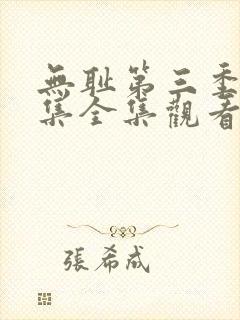 無耻第三季
集全集觀看
張希成